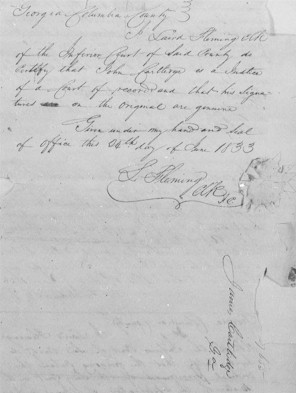 Georgia Columbia County }
I, Laird Fleming Clk
of the Inferior Court of Said County do
Certify that John Cartledge is a Justice
of a Court of record and that his Signa-
tures on the Original are genuine
Given under my hand and Seal
of Office this 24th day of Jan 1833
L. Fleming
Clk
James Cartledge
Ga